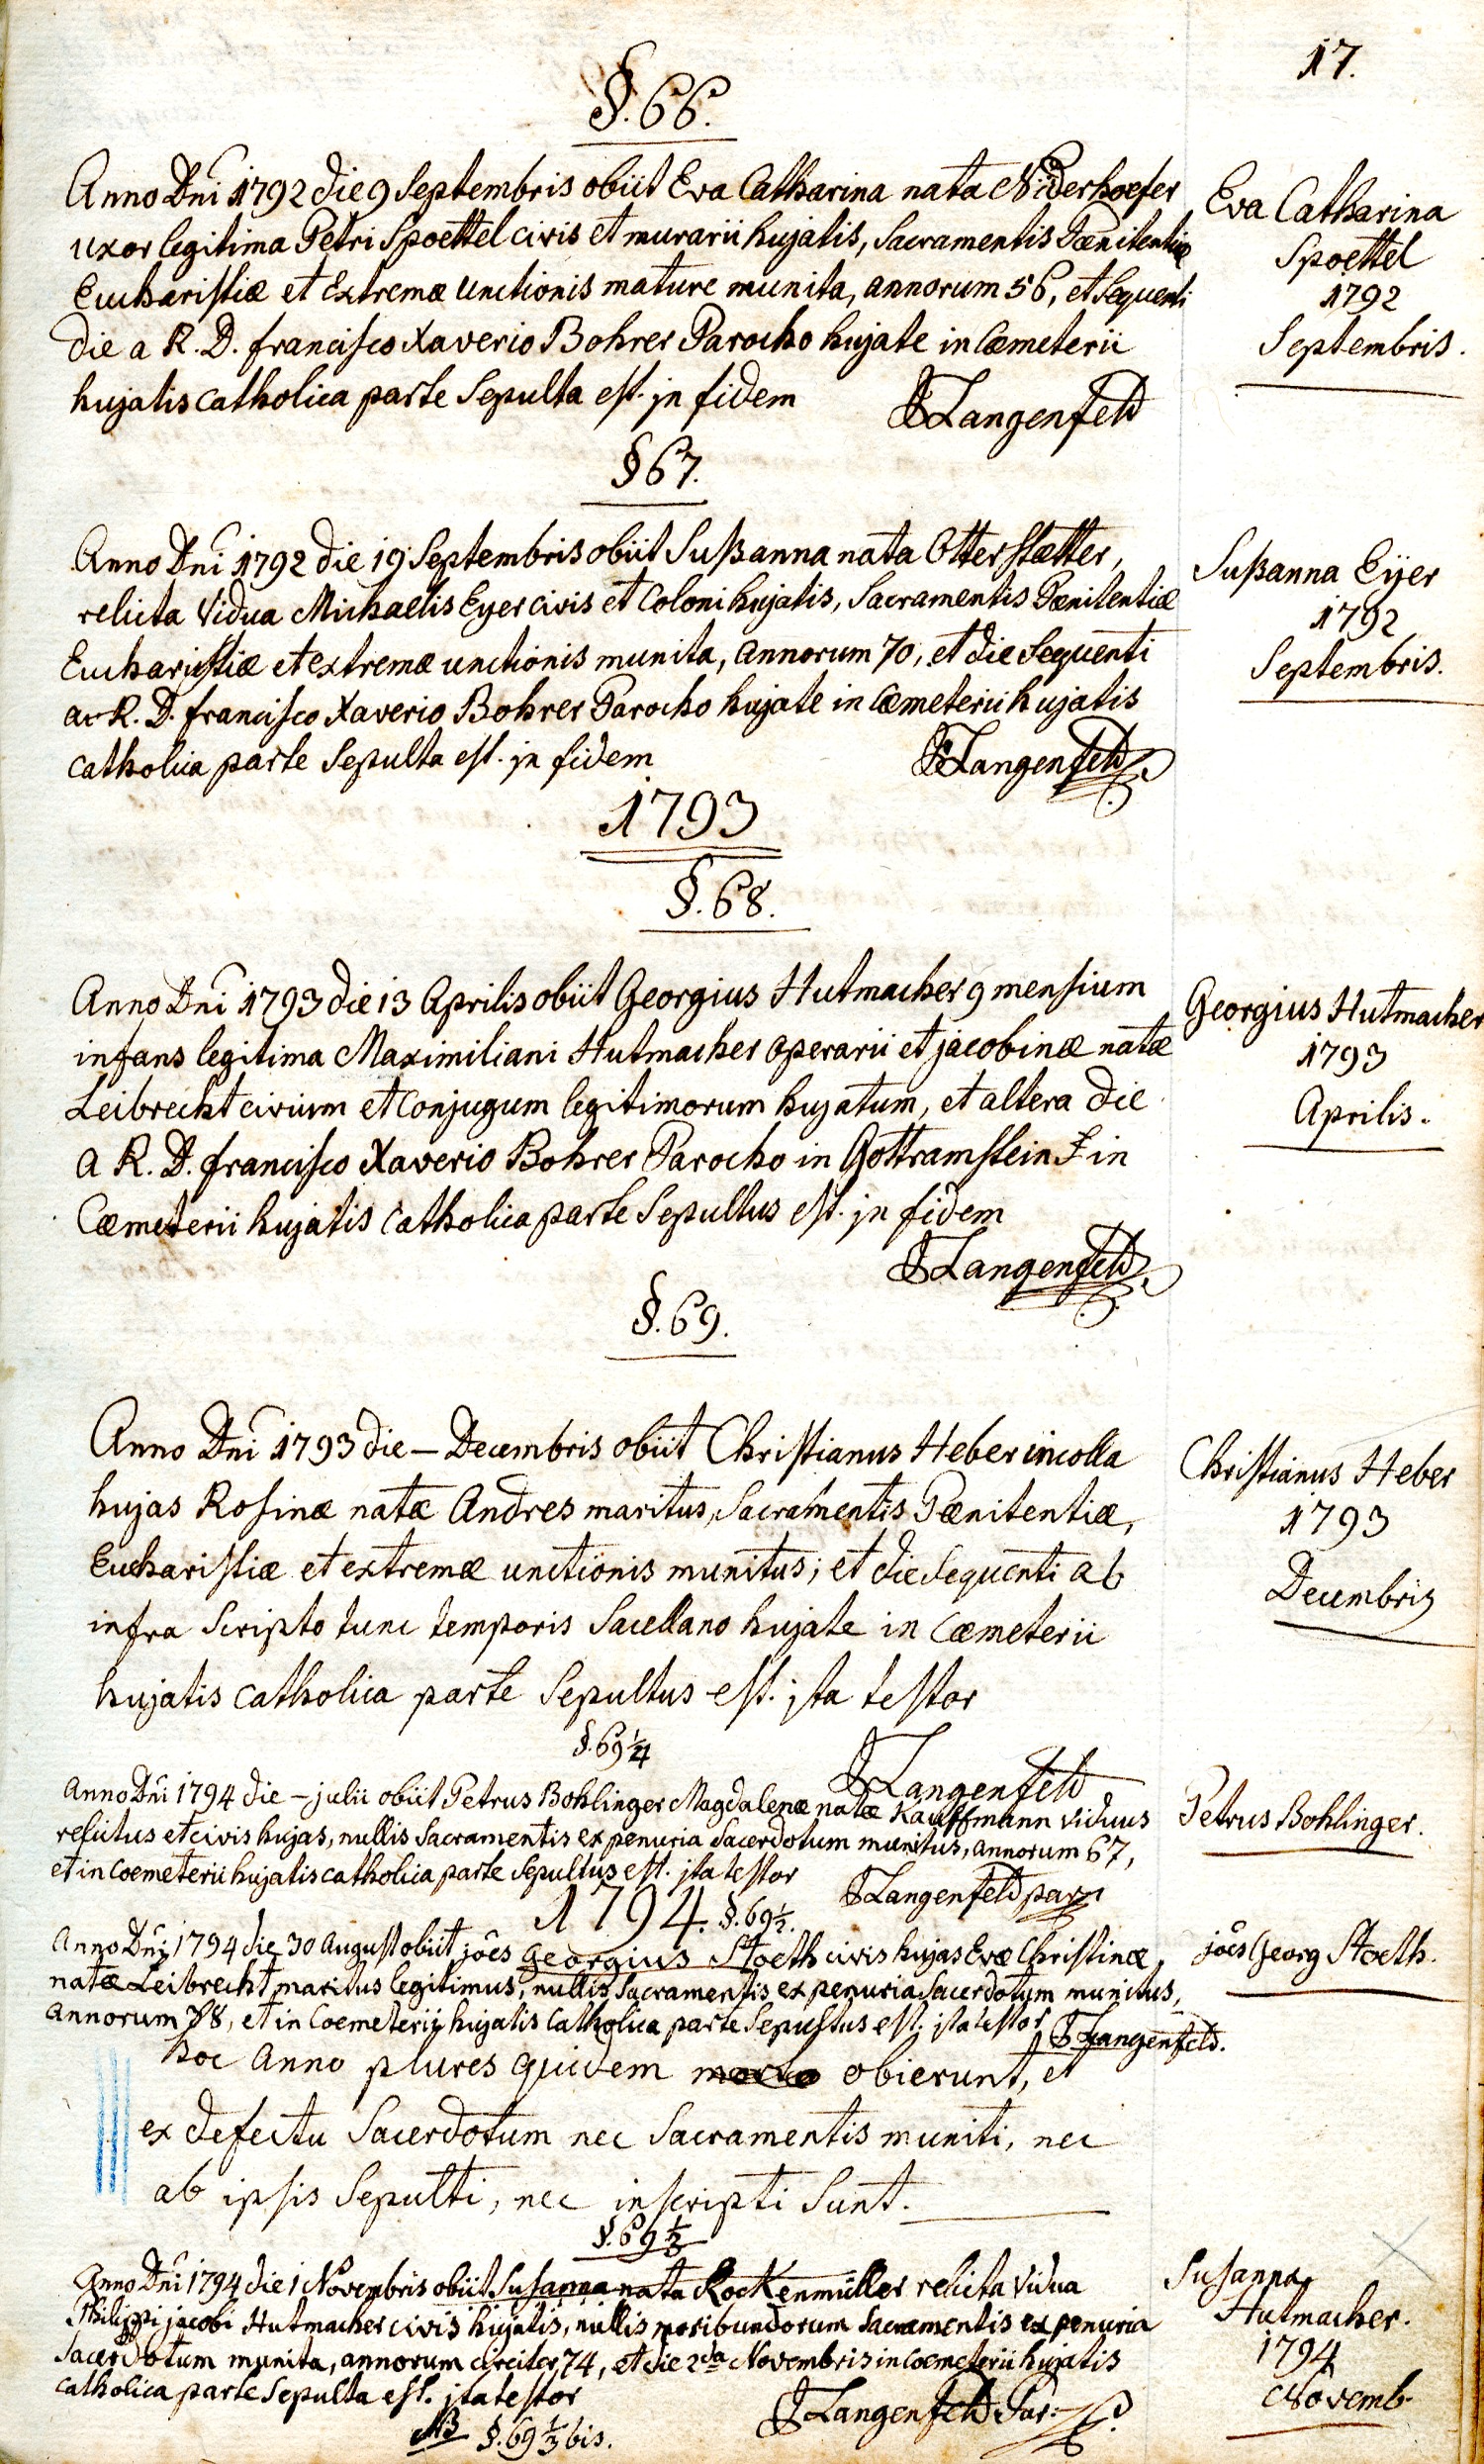 17.
§. 66.
Anno Dni 1792 die 9 Septembris obiit Eva Catharina nata Niderhoefer
uxor legitima Petri Spoettel civis et murarii hujatis, Sacramentis Pœnitentiæ
Eucharistiæ et Extremæ Unctionis mature munita, annorum 56, et sequenti
die a R. D. francisco Xaverio Bohrer Parocho hujate in Cœmeterii
hujatis catholica parte Sepulta est. jn fidem
Langenfeld
Eva Catharina
Spoettel
1792
Septembris.
§ 67.
Anno Dni 1792 die 19 Septembris obiit Sußanna nata Otterstætter,
relicta Vidua Michaelis Eyer civis et Coloni hujatis, Sacramentis Pœnitentiæ
Eucharistiæ et extremæ unctionis munita, annorum 70, et die Sequenti
a R. D. francisco Xaverio Bohrer Parocho hujate in Cœmeterii hujatis
catholica parte Sepulta est. jn fidem
Langenfeld
Sußanna Eÿer
1792
Septembris.
1793
§. 68.
Anno Dni 1793 die 13 Aprilis obiit Georgius Hutmacher 9 mensium
infans legitima Maximiliani Hutmacher operarii et jacobinæ natæ
Leibrecht civium et Conjugum legitimorum hujatum, et altera die
a R. D. francisco Xaverio Bohrer Parocho in Gottramstein in
Cœmeterii hujatis catholica parte Sepultus est. jn fidem
Langenfeld
Georgius Hutmacher
1793
Aprilis.
§. 69.
Anno Dni 1793 die – Decembris obiit Christianus Heber incolla
hujas Rosinæ natæ Andres maritus, Sacramentis Pœnitentiæ,
Eucharistiæ et extremæ unctionis munitus; et die Sequenti ab
infra Scripto tunc temporis Sacellano hujate in Cœmeterii
hujatis catholica parte Sepultus est. jta testor
Langenfeld
Christianus Heber
1793
Decembris
§. 69 1/4
Anno Dni 1794 die – julii obiit Petrus Bohlinger Magdalenæ natæ Kauffmann viduus
relictus et civis hujas, nullis Sacramentis ex penuria Sacerdotum munitus, annorum 67,
et in Coemeterii hujatis catholica parte Sepultus est. jta testor
Langenfeld par
Petrus Bohlinger.
1794. §. 69 1/2.
Anno Dni 1794 die 30 August obiit joês Georgius Stoeth civis hujas Evæ Christinæ
natæ Leibrecht maritus legitimus, nullis Sacramentis ex penuria Sacerdotum munitus,
Annorum 78, et in Coemeterii hujatis Catholica parte Sepultus est. jta testor Langenfeld.
joês Georg Stoeth.
hoc anno plures quidem obierunt, et
ex defectu Sacerdotum nec Sacramentis muniti, nec
ab ipsis Sepulti, nec inscripti Sunt.
§. 69 1/3
Anno Dni 1794 die 1 Novembris obiit Susanna nata Rockenmüller relicta Vidua
Philippi jacobi Hutmacher civis hujatis, nullis moribundorum Sacramentis ex penuria
Sacerdotum munita, annorum circiter 74, et die 2da Novembris in Coemeterii hujatis
catholica parte Sepulta est. jta testor
Langenfeld Par:
NB §. 69 1/3 bis.
Susanna
Hutmacher.
1794
Novemb.